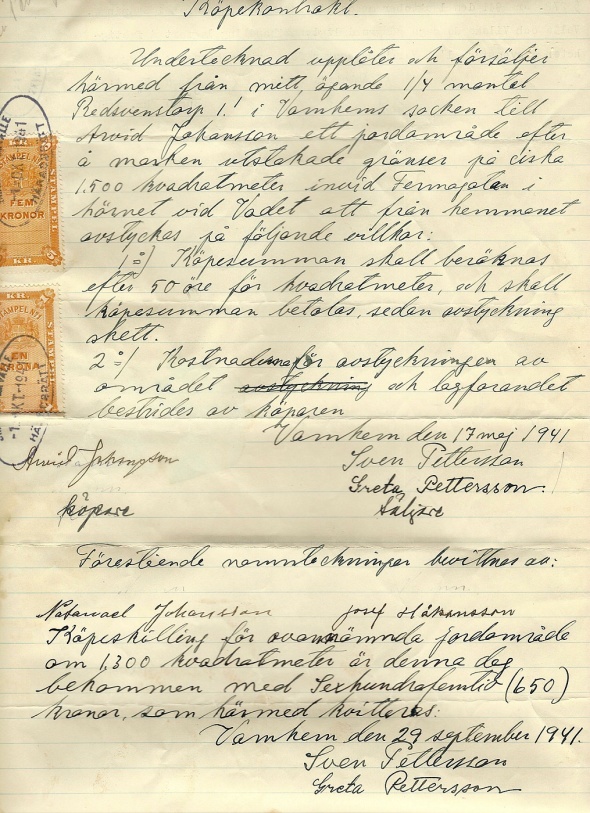 Köpekontrakt.
Undertecknad upplåter och försäljer
härmed från mitt, ägande 1/4 mantal
Redsvenstorp 1.! i Varnhems socken till
Arvid Johansson ett jordområde efter
å marken utstakade gränser på cirka
1.500 kvadratmeter invid Fermagatan i
hörnet vid Vadet att från hemmanet
avstyckas på följande villkor:
1 º/ Köpesumman skall beräknas
efter 50 öre för kvadratmeter, och skall
köpesumman betalas, sedan avstyckning
skett.
2 º/ Kostnaderna för avstyckningen av
området avstyckning och lagfarandet
bestrides av köparen
Varnhem den 17 maj 1941
Arvid Johansson
Sven Pettersson
Greta Pettersson.
köpare
Säljare
Förestående namnteckningar bevittnas av:
Natanael Johansson
Josef Håkansson
Köpeskilling för ovannämnda jordområde
om 1.300 kvadratmeter är denna dag
bekommen med Sexhundrafemtio (650)
kronor, som härmed kvitteras:
Varnhem den 29 september 1941.
Sven Pettersson
Greta Pettersson
FEM
KRONOR
STÄMPEL
KR.
EN
KRONA